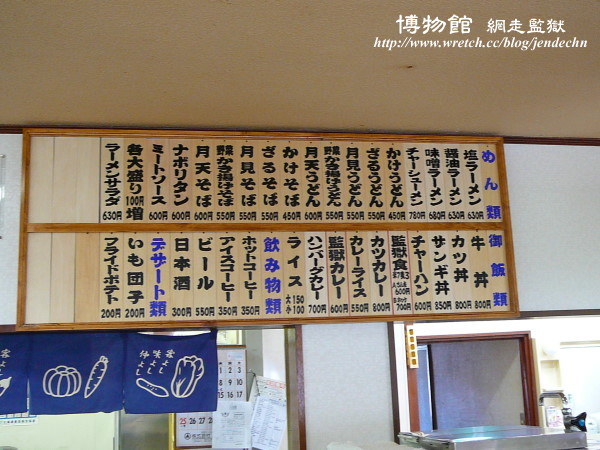 博物館 網走監獄
http://www.wretch.cc/blog/jendechn
めん類
塩ラーメン 630円
醤油ラーメン 630円
味噌ラーメン 680円
チャーシューメン 780円
かけうどん 450円
ざるうどん 550円
月見うどん 550円
野菜かき揚げうどん 550円
月天うどん 600円
かけそば 450円
ざるそば 550円
月見そば 550円
野菜かき揚げそば 550円
月天そば 600円
ナポリタン 600円
ミートソース 600円
各大盛り 100円増
ラーメンサラダ 630円
御飯類
牛丼 800円
カツ丼 800円
サンギ丼 850円
チャーハン 600円
監獄食
700円
カツカレー 800円
カレーライス 550円
監獄カレー 600円
ハンバーグカレー 700円
ライス 大150 小100
飲み物類
ホットコーヒー 350円
アイスコーヒー 350円
ビール 550円
日本酒 300円
デザート類
いも団子 200円
フライドポテト 200円